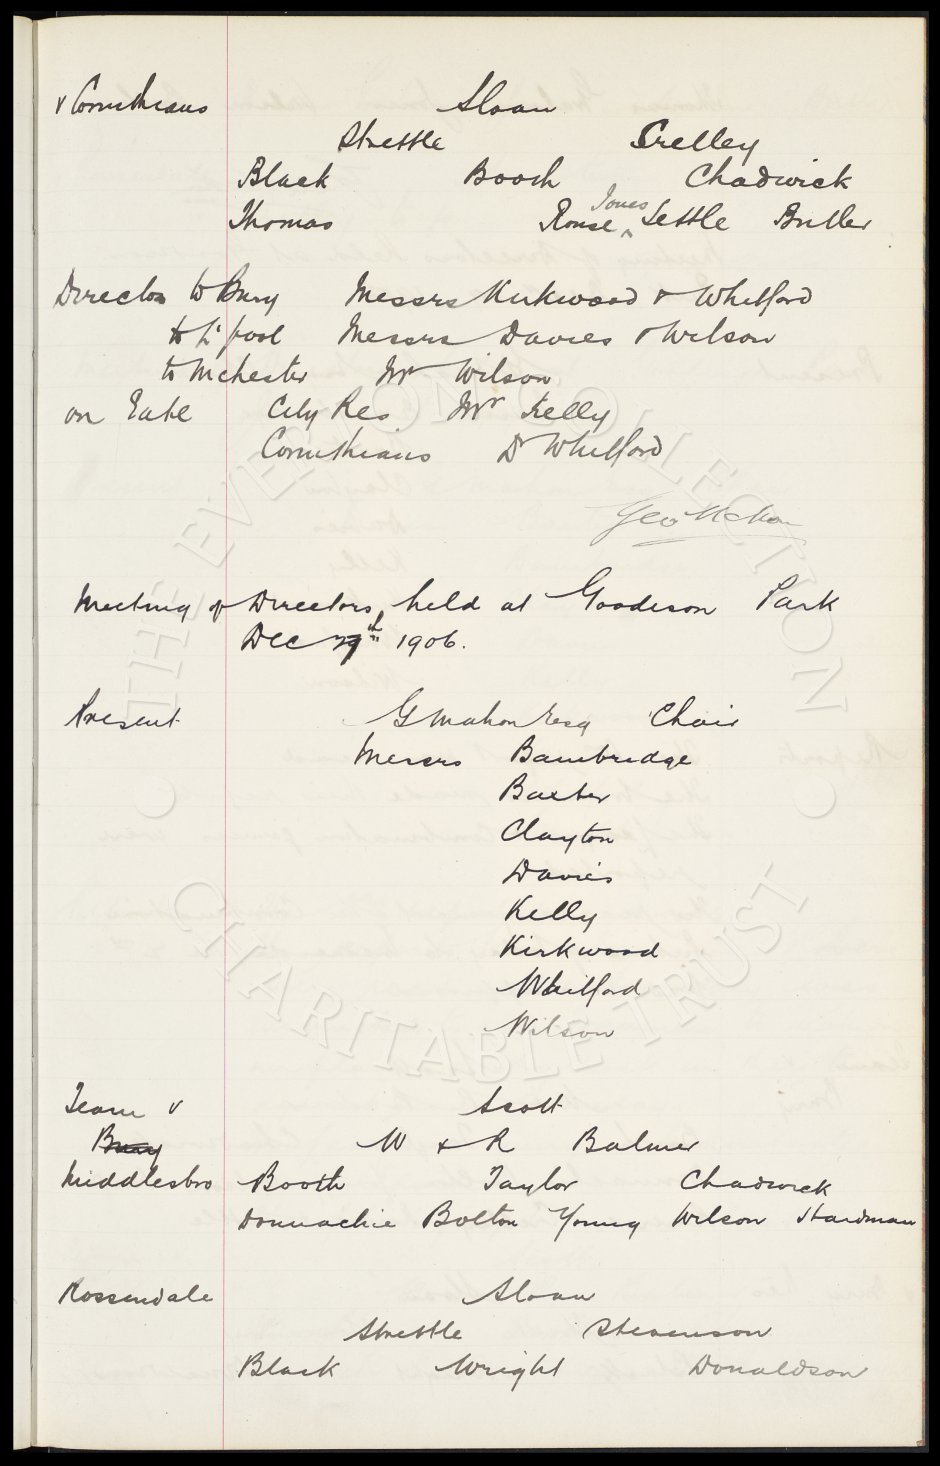 v Corinthians Sloan
Strettle Crelley
Black Booth Chadwick
Jones
Thomas Rouse ^ Settle Butler
Directors to Bury Messrs Kirkwood & Whitford
to L'pool Messrs Davies & Wilson
to Mchester Mr Wilson
on Gate City Res Mr Kelly
Corinthians Dr Whitford
Geo Mahon
Meeting of Directors, held at Goodison Park
Dec 29th 1906.
Present G Mahon Esq Chair
Messrs Bainbridge
Baxter
Clayton
Davies
Kelly
Kirkwood
Whitford
Wilson
Team v Scott
Bury W & R Balmer
Middlesbro Booth Taylor Chadwick
Donnachie Bolton Young Wilson Hardman
Rossendale Sloan
Strettle Stevenson
Black Wright Donaldson
THE EVERTON COLLECTION
CHARITABLE TRUST